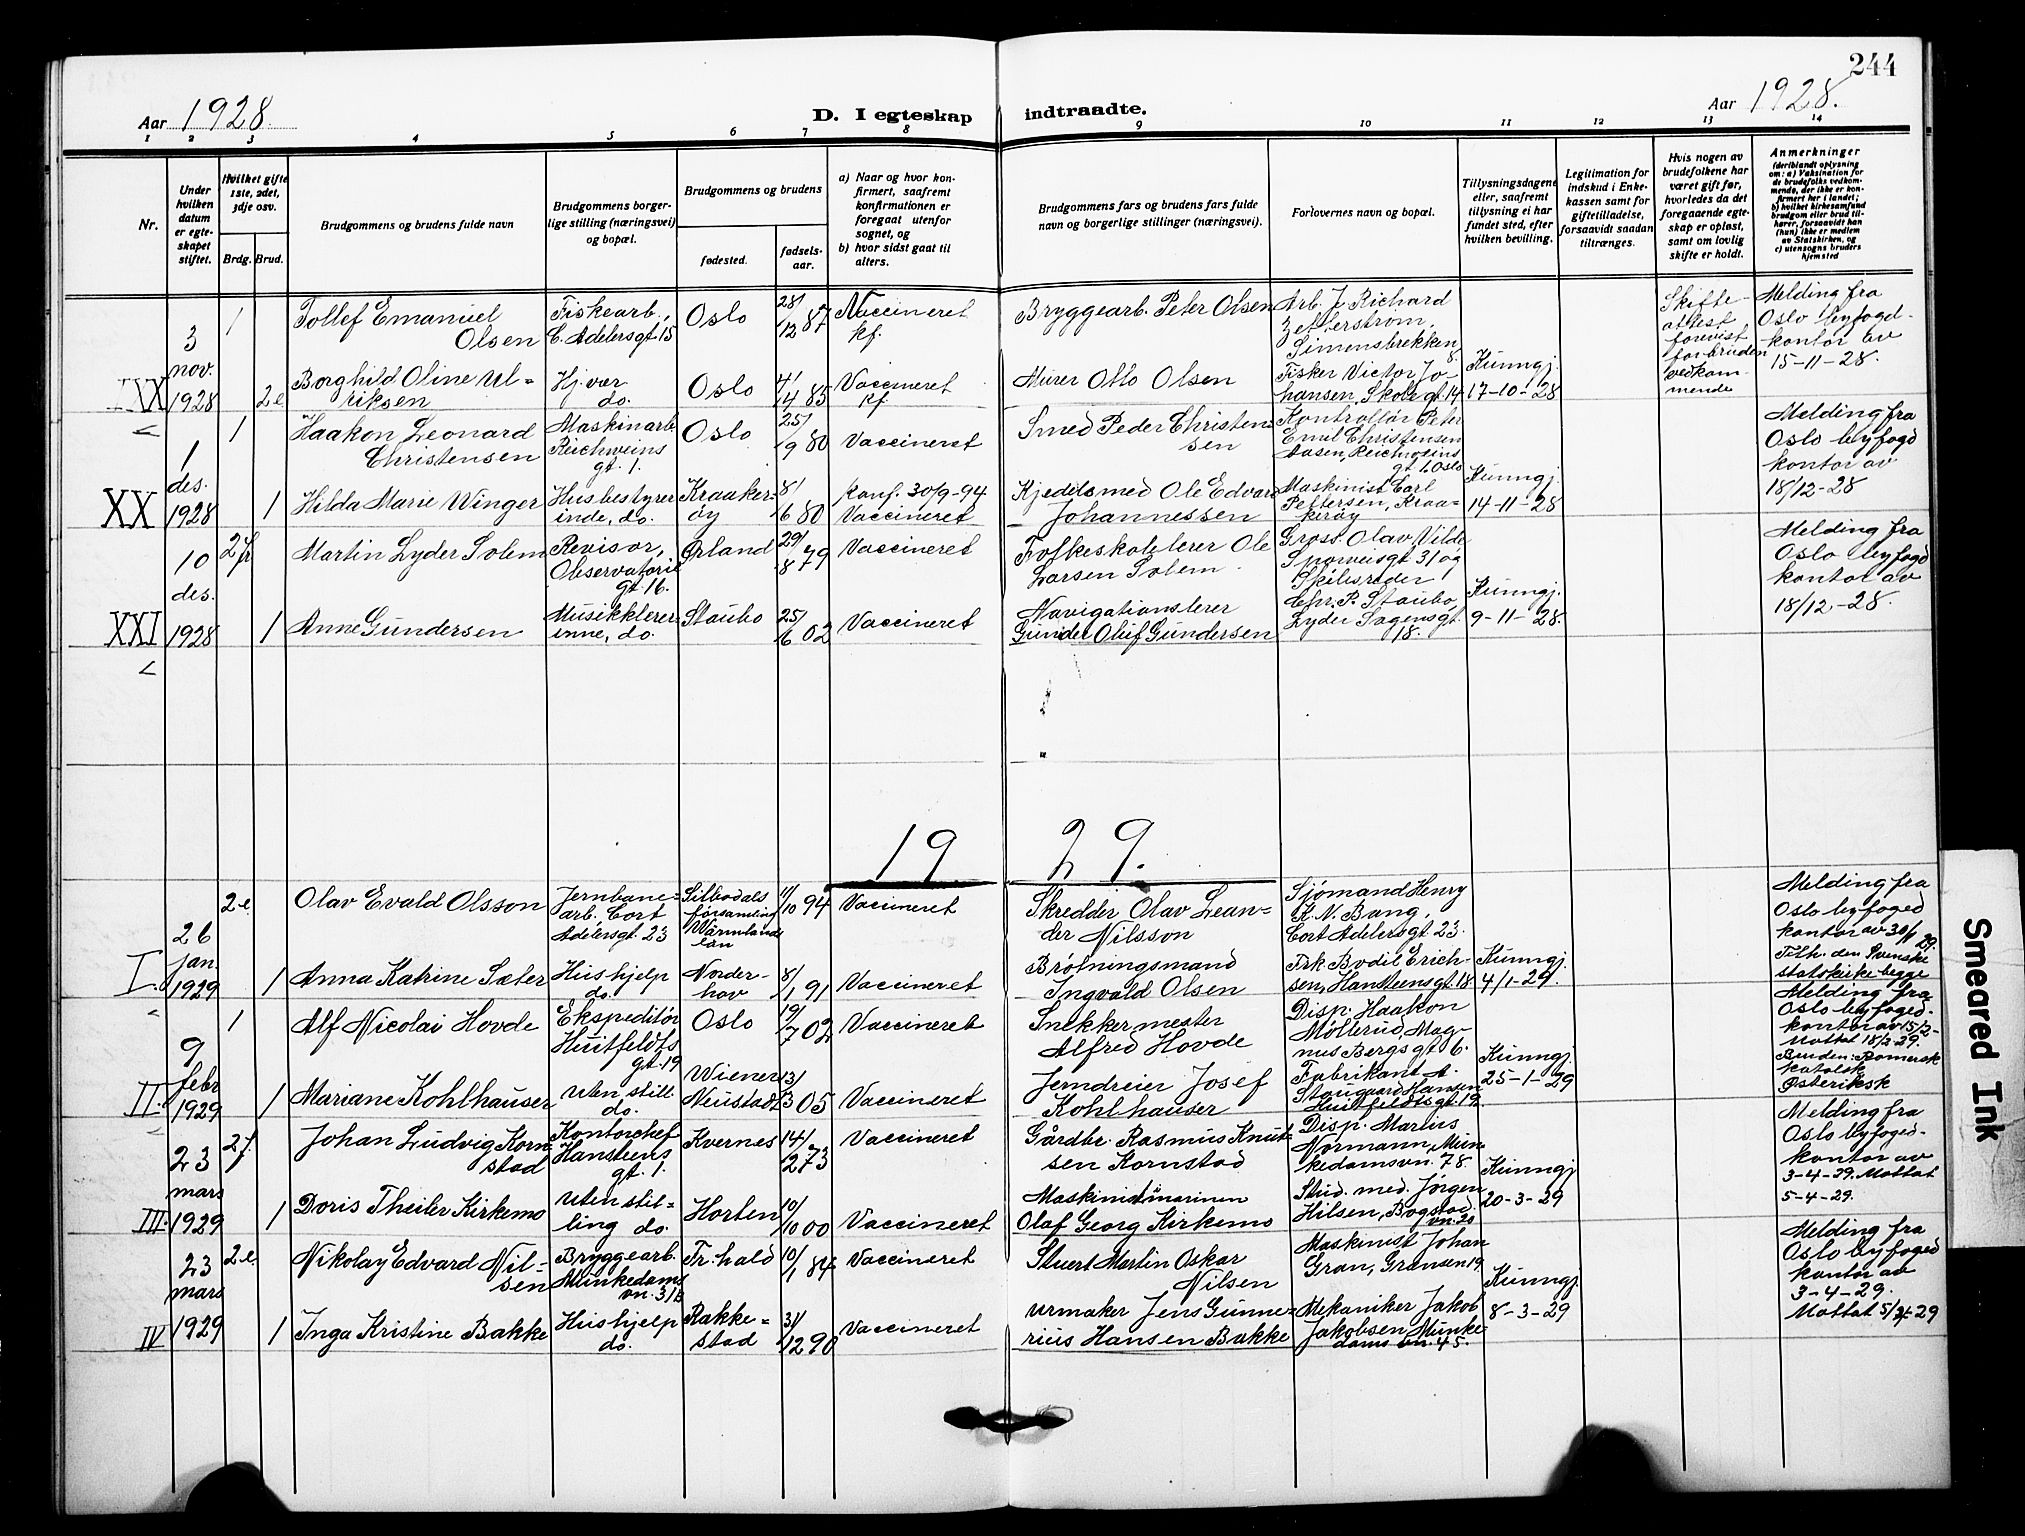 244
Aar 1928.
D. I egteskap indtraadte.
Aar 1928.
1 2 3 4 5 6 7 8 9 10 11 12 13 14
Nr.
Under hvilken datum er egte-skapet stiftet.
Hvilket gifte 1ste, 2det, 3dje osv.
Brdg. Brud.
Brudgommens og brudens fulde navn
Brudgommens borger-lige stilling (næringsvei) og bopæl.
Brudgommens og brudens
fødested.
fødsels-aar.
a) Naar og hvor kon-firmert, saafremt konfirmationen er foregaat utenfor sognet, og
b) hvor sidst gaat til alters.
Brudgommens fars og brudens fars fulde navn og borgerlige stillinger (næringsvei).
Forlovernes navn og bopæl.
Tillysningsdagene eller, saafremt tillysning ei har fundet sted, efter hvilken bevilling.
Legitimation for indskud i Enke-kassen samt for giftetilladelse, forsaavidt saadan tiltrænges.
Hvis nogen av brudefolkene har været gift før, hvorledes da det foregaaende egte-skap er opløst, samt om lovlig skifte er holdt.
Anmerkninger (deriblandt oplysning om: a) Vaksination for de brudefolks vedkom-mende, der ikke er kon-firmert her i landet; b) hvilket kirkesamfund brudgom eller brud til-hører, forsaavidt han (hun) ikke er medlem av Statskirken, og c) utensogns bruders hjemsted
3 nov. 1928
1 Tollef Emanuel Olsen
Fiskearb., C. Adelersgt. 15
Oslo 28/12 87 Vaccineret kf.
Bryggearb. Peter Olsen
Arb. J. Richard Zetterström, Simensbrekken 8.
Skifte-attest forevist for bruden vedkom-mende
Melding fra Oslo byfogd-kontor av 15-11-28.
2e Borghild Oline Ul=riksen
Hj.vær. do.
Oslo 4/14 85 Vaccineret kf.
Murer Otto Olsen
Fisker Victor Jo-hansen, Skolegt. 14
Kunngj. 17-10-28
XX 1 des. 1928
1 Haakon Leonard Christensen
Maskinarb. Reichweins gt. 1.
Oslo 25/9 80 Vaccineret
Smed Peder Christen=sen
Kontrollør Peter Emil Christensen Aasen, Reichweins gt 1, Oslo
Melding fra Oslo byfogd kontor av 18/12-28
1 Hilda Marie Winger
Husbestyrer inde, do.
Kraaker-øy 8/6 80 Konf. 30/9-94 Vaccineret
Kjedelsmed Ole Edvard Johannessen
Maskinist Carl Pettersen, Kraa=kerøy
Kunngj. 14-11-28
XXI 10 des. 1928
2 fr Martin Lyder Solem
Revisor, Observatorie gt. 16.
Ørland 29/8 79 Vaccineret
Folkeskolelærer Ole Larsen Solem
Gross. Olav Vilde Sporveisgt 31 og Skibsreder
Melding fra Oslo byfogd kontor av 18/12-28.
1 Anne Gundersen
Musikklærer inne, do.
Staubo 25/6 02 Vaccineret
Navigationslærer Gunder Oluf Gundersen
Chr. P. Staubo, Lyder Sagensgt. 18.
Kunngj. 9-11-28.
19 29.
I. 26 jan. 1929
2e. Olav Evald Olsson
Jernbane=arb. Cort Adelersgt. 23
Silbodals församling Värmlands län
11/10 94 Vaccineret
Skredder Olav Lean=der Nilsson
Sjømand Henry K. N. Bang, Cort Adelersgt. 23.
Melding fra Oslo byfoged kontor av 30/1 29. Tilh. den Svenske statskirke begge
1 Anna Katrine Sæter
Hushjelp do.
Norder-hov 8/1 91 Vaccineret
Brøtningsmand Ingvald Olsen
Frk Bodil Erich-sen, Hansteensgt. 18
Kunngj. 4/1-29.
II. 9 febr 1929
1 Alf Nicolai Hovde
Ekspeditør Huitfeldts gt. 19
Oslo 19/7 02 Vaccineret
Snekkermester Alfred Hovde
Disp. Haakon Møllerud, Mag-nus Bergs gt 6.
Melding fra Oslo byfoged-kontor av 15/2- Mottat 18/2-29. Bruden: Romersk katolsk Østeriksk
1 Mariane Kohlhauser
Uten still. do.
Wiener Neustadt 13/3 05 Vaccineret
Jerndreier Josef Kohlhauser
Fabrikant A. Stougaard Hansen Huitfeldtsgt. 19.
Kunngj. 25-1-29
III. 23 mars 1929
2 f. Johan Ludvig Korn=stad
Kontorchef Hansteens gt. 1.
Kvernes 14/2 73 Vaccineret
Gårdbr. Rasmus Knut=sen Kornstad
Disp. Marius Normann, Mun=kedamsvn. 78.
Melding fra Oslo byfoged-kontor av 3-4-29. Mottat 5-4-29.
1 Doris Theiler Kirkemo
Uten stil=ling do.
Horten 10/10 00 Vaccineret
Maskinist i marinen Olaf Georg Kirkemo
Stud. med. Jørgen Hilsen, Bogstad vn. 20
Kunngj 20-3-29
IV 23 mars 1929
2e. Nikolay Edvard Nil=sen
Bryggearb. Munkedams vn. 31B
Fr. hald 10/1 84 Vaccineret
Stuert Martin Oskar Nilsen
Maskinist Johan Gran, Grensen 19
Melding fra Oslo byfoged kontor av 3-4-29. Mottat 5/4-29
1 Inga Kristine Bakke
Hushjelp do.
Rakke=stad 31/12 90 Vaccineret
Urmaker Jens Gunne=rius Hansen Bakke
Mekaniker Jakob Jakobsen, Munke dams vn. 45.
Kunngj. 8-3-29
Smeared Ink